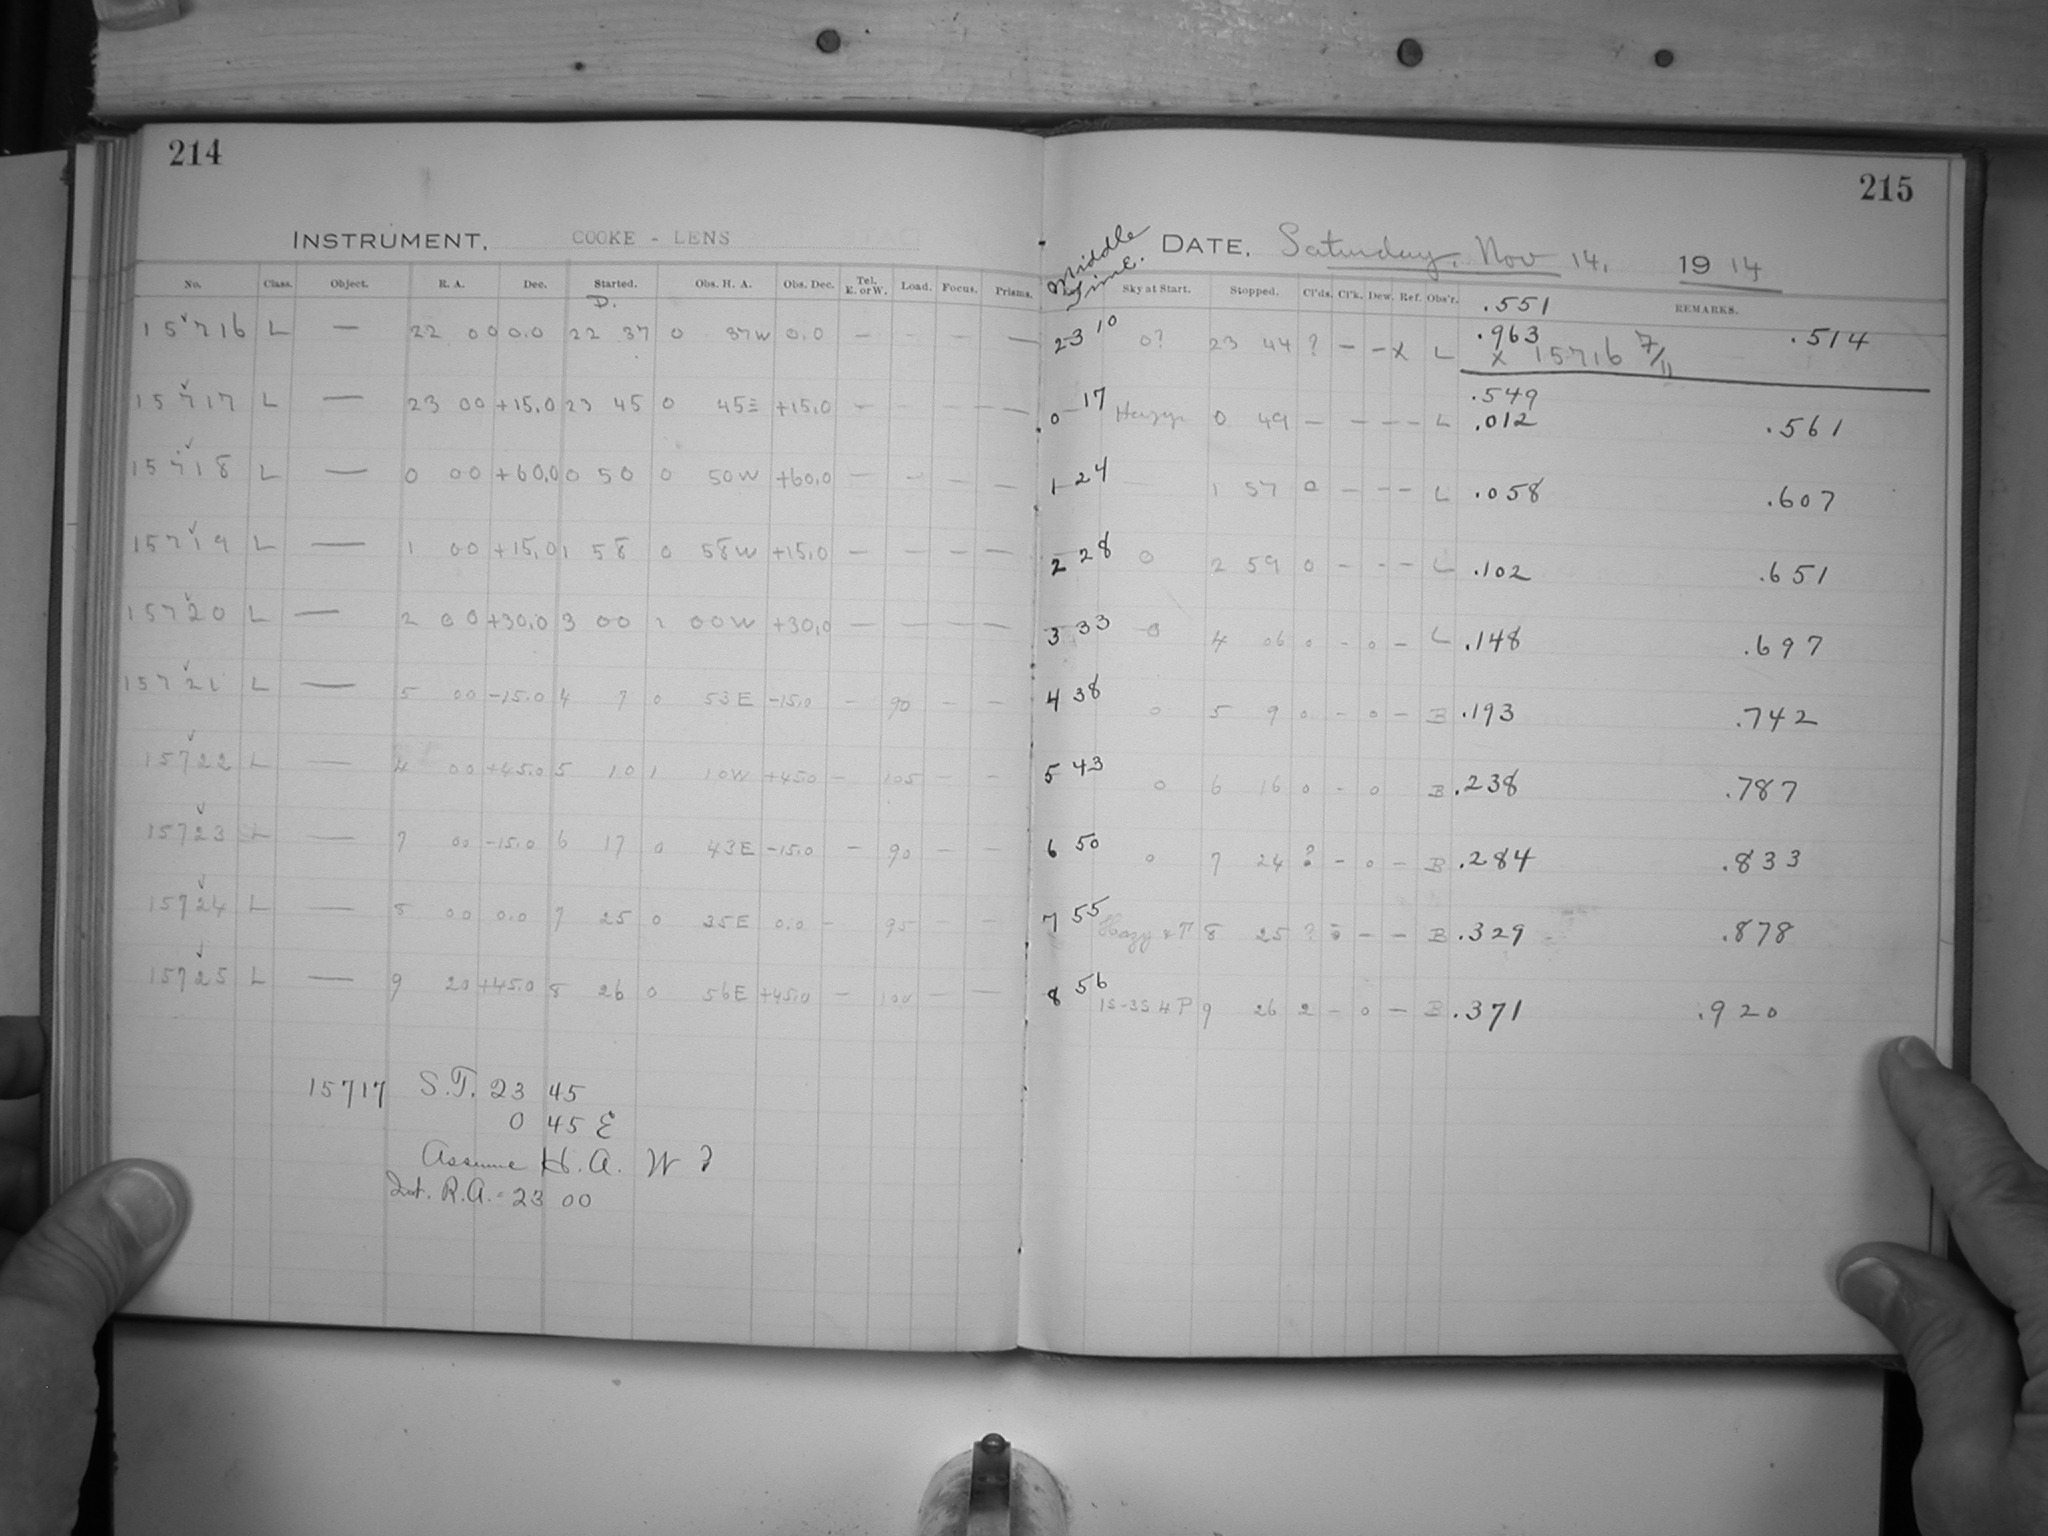 214
215
INSTRUMENT. COOKE - LENS
DATE. Saturday, Nov 14, 1914
Middle Time.
No. Class. Object. R. A. Dec. Started. Obs. H. A. Obs. Dec. Tel. E. or W. Load. Focus. Prisms. Sky at Start. Stopped. Cl'ds. Cl'k. Dew. Ref. Obs'r. REMARKS.
.551
15716 L — 22 00 0.0 22 37 0 37W 0.0 — - - - — 23 10 0? 23 44 ? - - X L .963 .514
X 15716 7/11
.549
15717 L — 23 00 +15.0 23 45 0 45E +15.0 - - - - - 0 17 Hazy 0 49 - - - - L .012 .561
15718 L — 0 00 +60.0 0 50 0 50W +60.0 - - - - - 1 24 1 57 0 - - - L .058 .607
15719 L — 1 00 +15.0 1 58 0 58W +15.0 - - - - - 2 28 0 2 59 0 - - - L .102 .651
15720 L — 2 00 +30.0 3 00 1 00W +30.0 - - - - - 3 33 0 4 06 0 - 0 - L .148 .697
15721 L — 5 00 -15.0 4 7 0 53E -15.0 - 90 - - 4 38 0 5 9 0 - 0 - B .193 .742
15722 L — 4 00 +45.0 5 10 1 10W +45.0 - 105 - - 5 43 0 6 16 0 - 0 B .238 .787
15723 L — 7 00 -15.0 6 17 0 43E -15.0 - 90 - - 6 50 0 7 24 ? - 0 - B .284 .833
15724 L — 8 00 0.0 7 25 0 35E 0.0 - 95 - - 7 55 Hazy 8 25 ? - - B .329 .878
15725 L — 9 20 +45.0 8 26 0 56E +45.0 - 100 - - 8 56 1S-3S 4P 9 26 2 - 0 - B .371 .920
15717 S.T. 23 45
0 45 E
Assume H.A. W ?
R.A. = 23 00